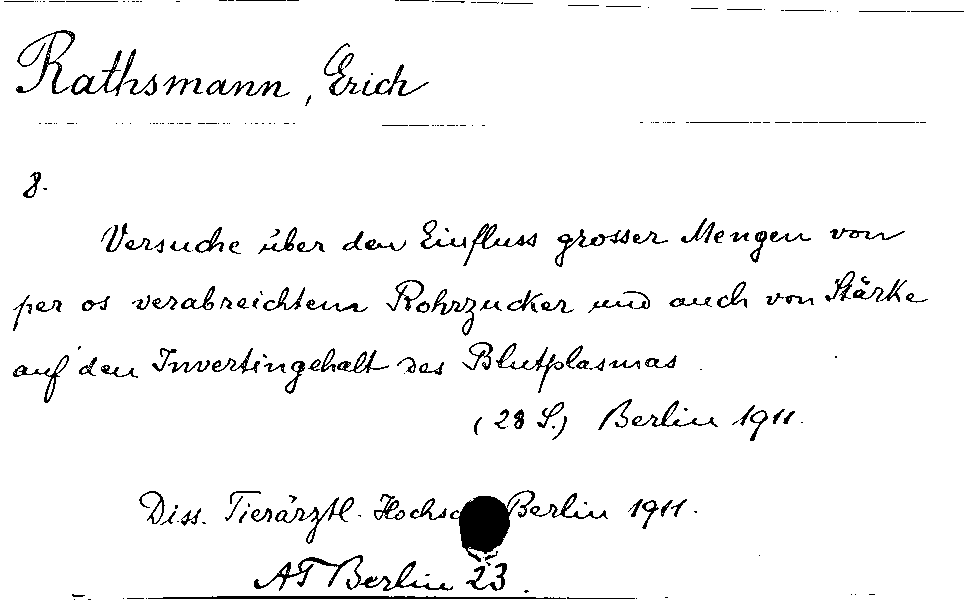 Rathsmann, Erich
8.
Versuche über den Einfluss grosser Mengen von
per os verabreichtem Rohrzucker und auch von Stärke
auf den Invertingehalt des Blutplasmas
(28 S.) Berlin 1911.
Diss. Tierärztl. Hochsc Berlin 1911.
AT Berlin 23.